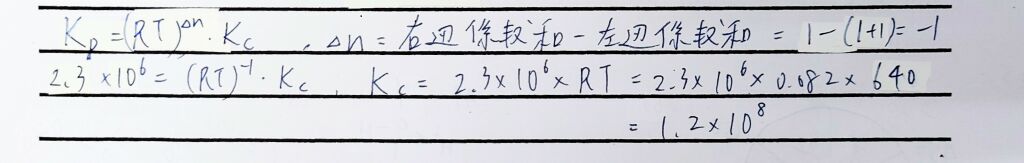 Kp = (RT)^Δn · Kc , Δn = 右边係数和 - 左边係数和 = 1-(1+1) = -1
2.3 × 10^6 = (RT)^-1 · Kc , Kc = 2.3 × 10^6 × RT = 2.3 × 10^6 × 0.082 × 640
= 1.2 × 10^8